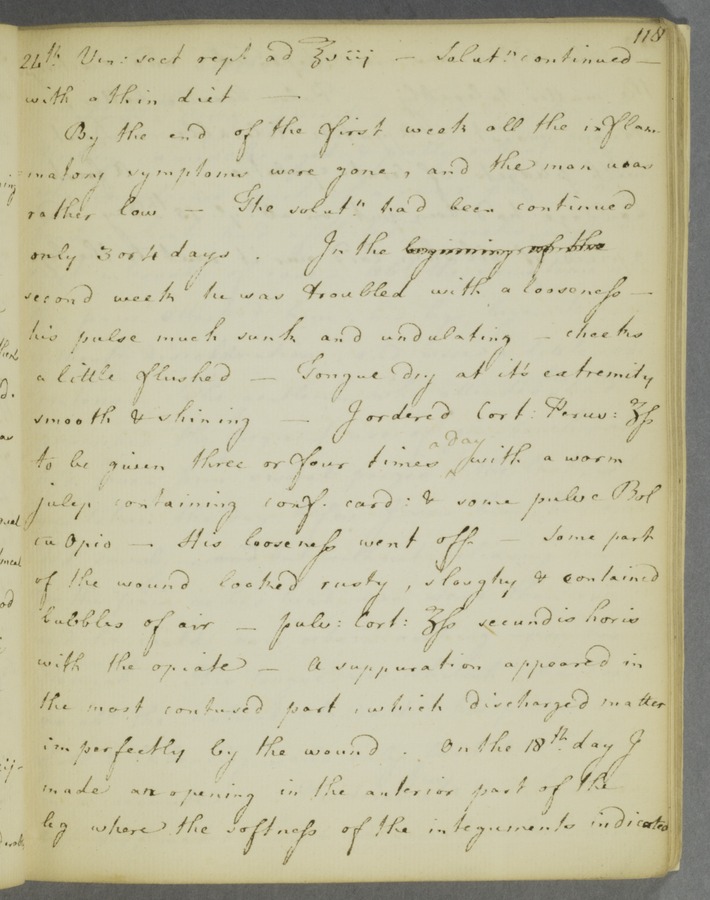 118
24th. Ven: sect rept. ad ℥viij — Solutn continued —
with a thin diet —
By the end of the first week all the inflam
matory symptoms were gone, and the man was
rather low — The solutn had been continued
only 3 or 4 days . In the beginning of the
second week he was troubled with a looseness —
his pulse much sunk and undulating — cheeks
a little flushed — Tongue dry at it's extremity
smooth & shining — I ordered Cort: Peruv: ʒß
to be given three or four times a day with a warm
julep containing conf. card: & some pulve Bol
cu Opio — His looseness went off — some part
of the wound looked rusty, sloughy & contained
bubbles of air — pulv: Cort: ʒß secundis horis
with the opiate — A suppuration appeared in
the most contused part, which discharged matter
imperfectly by the wound . On the 18th. day I
made an opening in the anterior part of the
leg where the softness of the integuments indicated